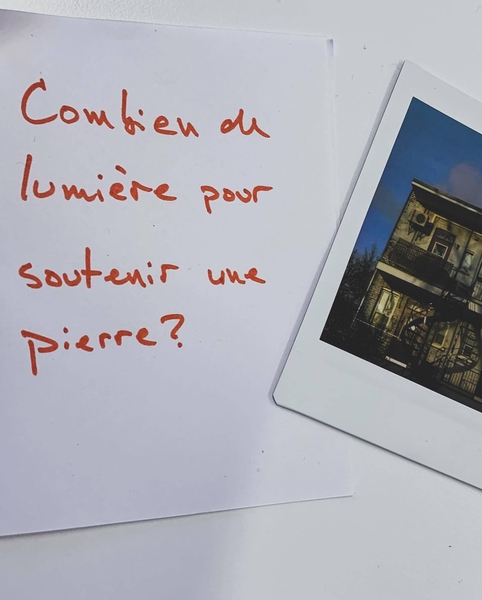 Combien de
lumière pour
soutenir une
pierre?